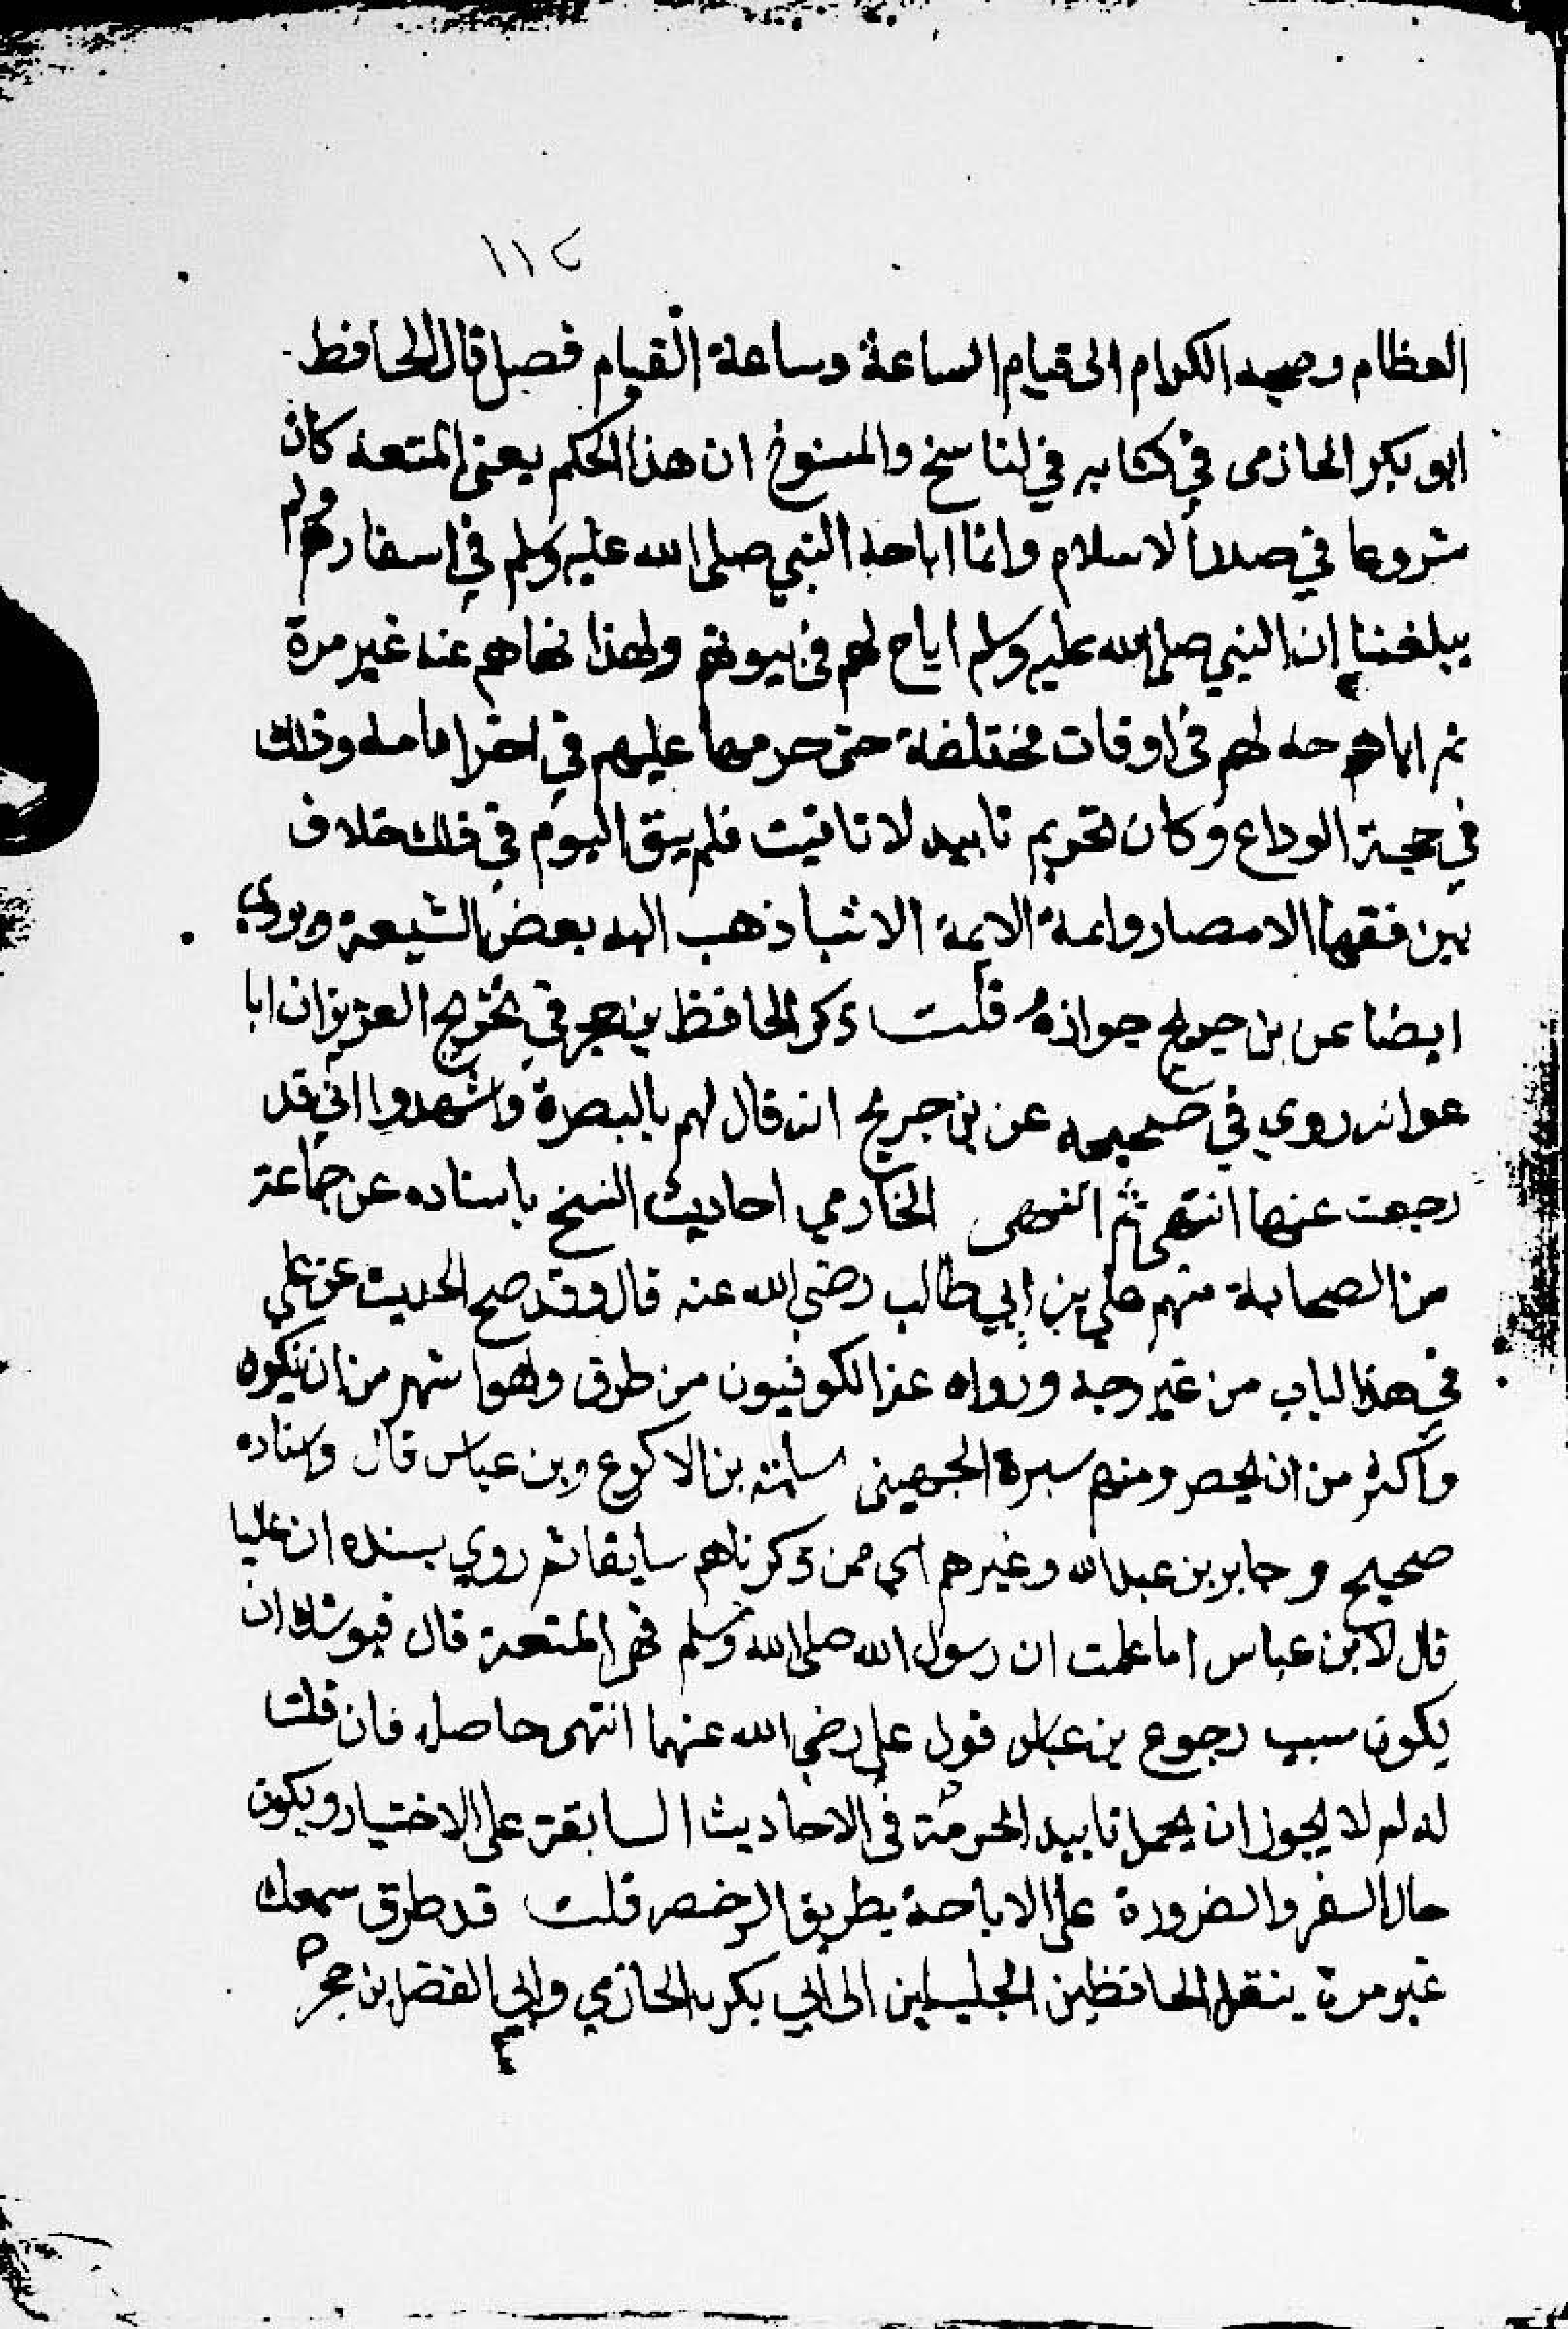 ١١٢
العظام وصحبه الكرام الى قيام الساعة وساعة القيام فصل قال الحافظ
ابو بكر الحازمى في كتابه في لناسخ والمنسوخ ان هذا الحكم يعنى المتعه كان
شروعا في صدر الاسلام وانما اباحه النبي صلى الله عليه وسلم في اسفارهم ولم
يبلغنا ان النبي صلى الله عليه وسلم اباح لهم فى بيوتهم ولهذا نهاهم عنه غير مرة
ثم اباحه لهم فى اوقات مختلفة حتى حرمها عليهم في اخر ايامه وذلك
في حجة الوداع وكان تحريم تابيد لا تاقيت فلم يبق اليوم في ذلك خلاف
بين فقها الامصار وايمة الايمة الا شيا ذهب اليه بعض الشيعة ويروي
ايضا عن بن جريج جوازه قلت ذكر الحافظ بن حجر في تخريج العزيز ان ابا
عوانه روي في صحيحه عن بن جريج انه قال لهم بالبصرة واشهدوا اني قد
رجعت عنها انتهى ثم انهى الحازمي احاديث النسخ باسناده عن جماعة
من الصحابة منهم علي بن ابي طالب رضي الله عنه قال وقد صح الحديث عن علي
في هذا الباب من غير وجه ورواه عنه الكوفيون من طرق وهوا شهر من ان ينكره
واكثر من ان يحصر ومنهم سبرة الجهينى سلمة بن الاكوع وبن عباس قال واسناده
صحيح و جابر بن عبد الله وغيرهم اي ممن ذكرناهم سابقا ثم روي بسنده ان عليا
قال لابن عباس اما علمت ان رسول الله صلى الله وسلم نهى المتعة قال فيوشك ان
يكون سبب رجوع بن عباس قول علي رضي الله عنهما انتهى حاصله فان قلت
له لم لا يجوز ان يحمل تابيد الحرمة في الاحاديث السابقة على الاختيار ويكون
حال السفر والضرورة على الاباحة بطريق الرخصه قلت قد طرق سمعك
غير مرة ينقل الحافظين الجليلين الى ابي بكر الحازمي وابي الفضل بن حجر